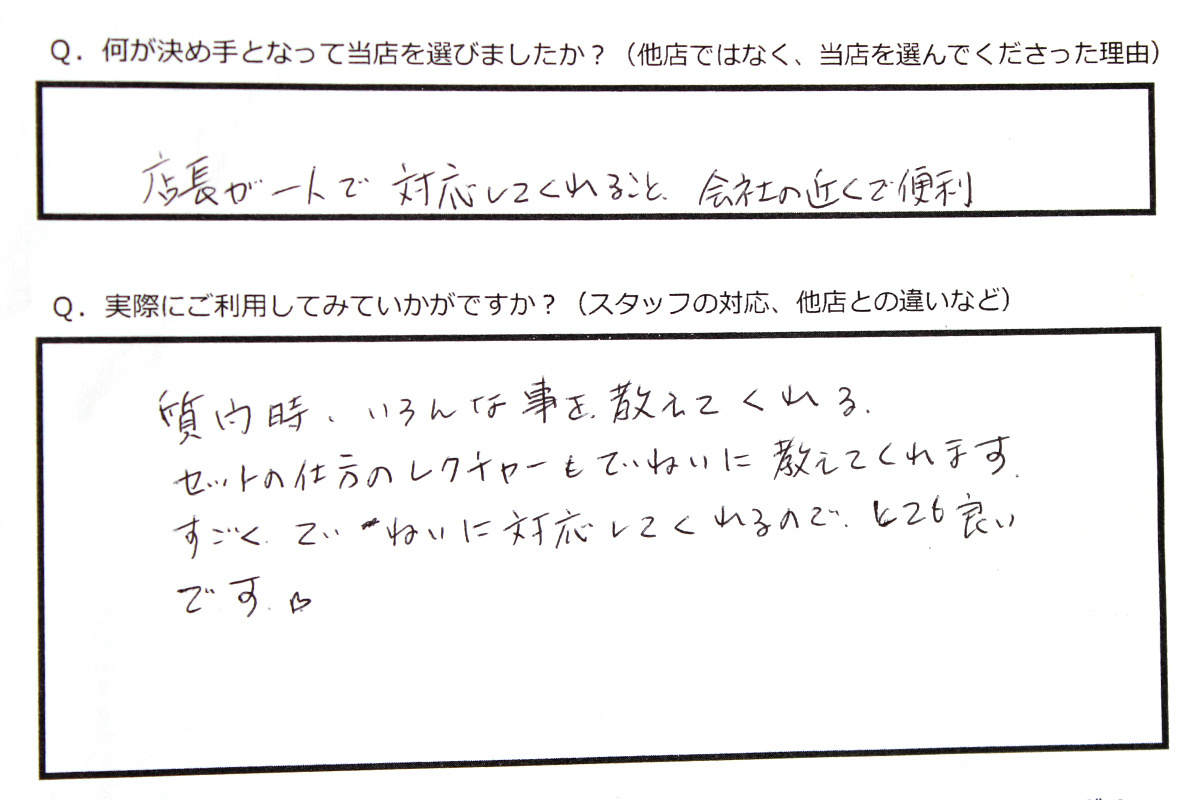 Q. 何が決め手となって当店を選びましたか？（他店ではなく、当店を選んでくださった理由）
店長が一人で 対応してくれること、会社の近くで便利
Q. 実際にご利用してみていかがですか？（スタッフの対応、他店との違いなど）
質内時、いろんな事を、教えてくれる。
セットの仕方のレクチャーもていねいに 教えてくれます。
すごく、ていねいに対応してくれるので、とても良い
です。♡